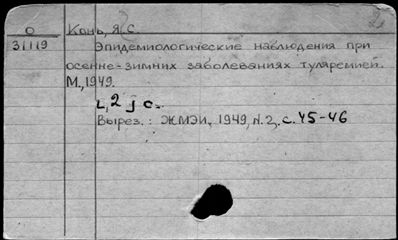 О
31119
Кань, Я.С.
Эпидемиологические наблюдения при
осенне-зимних заболеваниях туляремией.
М., 1949.
2 с.
Вырез.: ЖМЭИ, 1949, N.2, с. 45-46